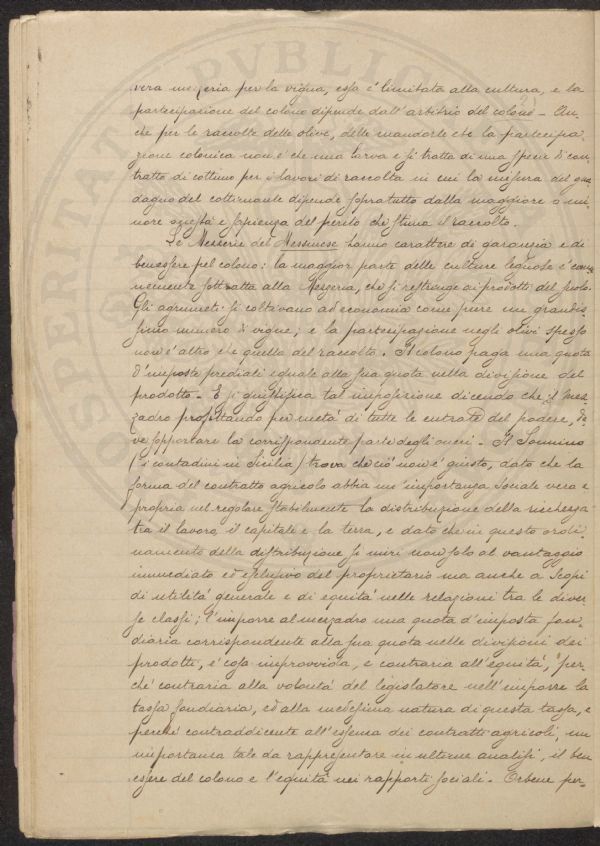 vera mezzeria per la vigna, essa è limitata alla cultura, e la
partecipazione del colono dipende dall'arbitrio del colono - An-
che per le raccolte delle olive, delle mandorle etc la partecipa
zione colonica non è che una larva e si tratta di una specie di con
tratto di cottimo per i lavori di raccolta in cui la misura del gua
dagno del cottimante dipende sopratutto dalla maggiore o mi
nore onestà e sapienza del perito che stima il raccolto.
Le Mezzerie del Messinese hanno carattere di garanzia e di
benessere pel colono: la maggior parte delle culture legnose è comu
nemente sottratta alla Mezzeria, che si restringe ai prodotti del suolo.
Gli agrumeti si coltivano ad economia come pure un grandis
simo numero di vigne; e la partecipazione negli olivi spesso
non è altro che quella del raccolto. Il colono paga una quota
d'imposte prediali eguale alla sua quota nella divisione del
prodotto. E si giustifica tal imposizione dicendo che il mez
zadro profittando per metà di tutte le entrate del podere, de
ve sopportare la corrispondente parte degli oneri - Il Sonnino
(i contadini in Sicilia) trova che ciò non è giusto, dato che la
forma del contratto agricolo abbia un'importanza sociale vera e
propria nel regolare stabilmente la distribuzione della ricchezza
tra il lavoro, il capitale e la terra, e dato che in questo ordi
namento della distribuzione si miri non solo al vantaggio
immediato ed esclusivo del proprietario ma anche a scopi
di utilità generale e di equità nelle relazioni tra le diver
se classi; l'imporre al mezzadro una quota d'imposta fon
diaria corrispondente alla sua quota nelle divisioni dei
prodotti, è cosa improvvida, e contraria all'equità, "per
chè contraria alla volontà del legislatore nell'imporre la
tassa fondiaria, ed alla medesima natura di questa tassa, e
perchè contraddicente all'essenza dei contratti agricoli, un
importanza tale da rappresentare in ultime analisi, il ben
essere del colono e l'equità nei rapporti sociali - Orbene per-